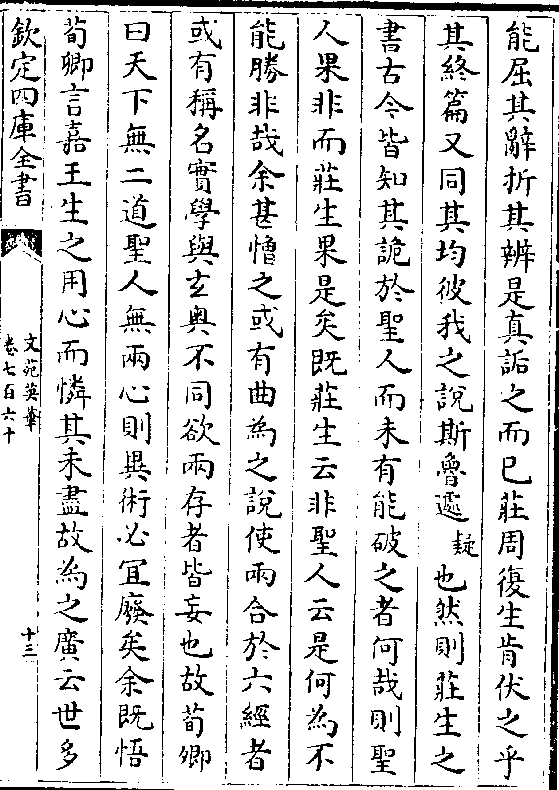 能屈其辭折其辨是真詬之而已莊周復生肯伏之乎
其終篇又同其均彼我之說斯魯遽疑也然則莊生之
書古今皆知其詭於聖人而未有能破之者何哉則聖
人果非而莊生果是矣既莊生云非聖人云是何為不
能勝非哉余甚憎之或有曲為之說使兩合於六經者
或有稱名實學與玄奥不同欲兩存者皆妄也故荀卿
曰天下無二道聖人無兩心則異術必宜廢矣余既悟
荀卿言嘉王生之用心而憐其未盡故為之廣云世多
欽定四庫全書
文苑英華
卷七百六十
十三